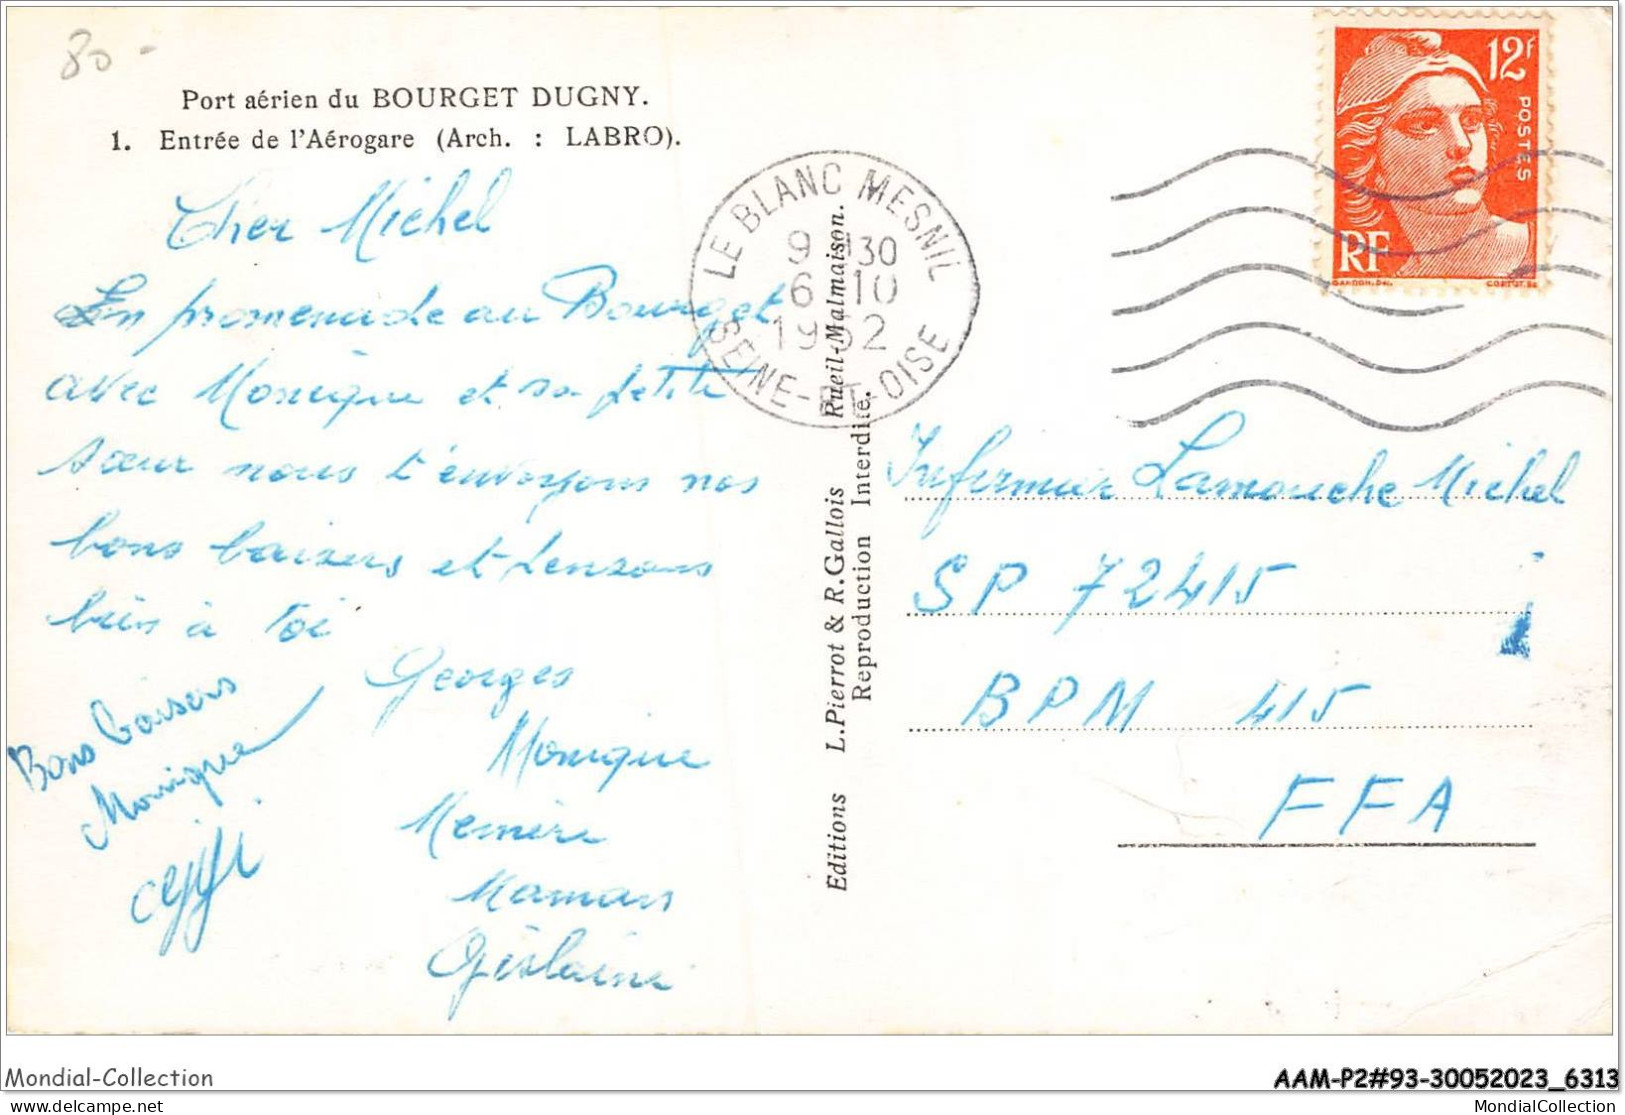 80 -
Port aérien du BOURGET DUGNY.
1. Entrée de l'Aérogare (Arch. : LABRO).
Cher Michel
En promenade au Bourget
avec Monique et sa petite
sœur nous t'envoyons nos
bons baisers et pensons
bien à toi
Georges
Monique
Memère
Maman
Gislaine
Bons Baisers
Monique
LE BLANC MESNIL
9 H30
6 10
1952
SEINE-ET-OISE
Editions L.Pierrot & R.Gallois Rueil-Malmaison.
Reproduction Interdite.
12F
POSTES
RF
GANDON. Del.
CORTOT. Sc
Infirmier Lamouche Michel
SP 72415
BPM 415
FFA
Mondial-Collection
AAM-P2#93-30052023_6313
delcampe.net
MondialCollection